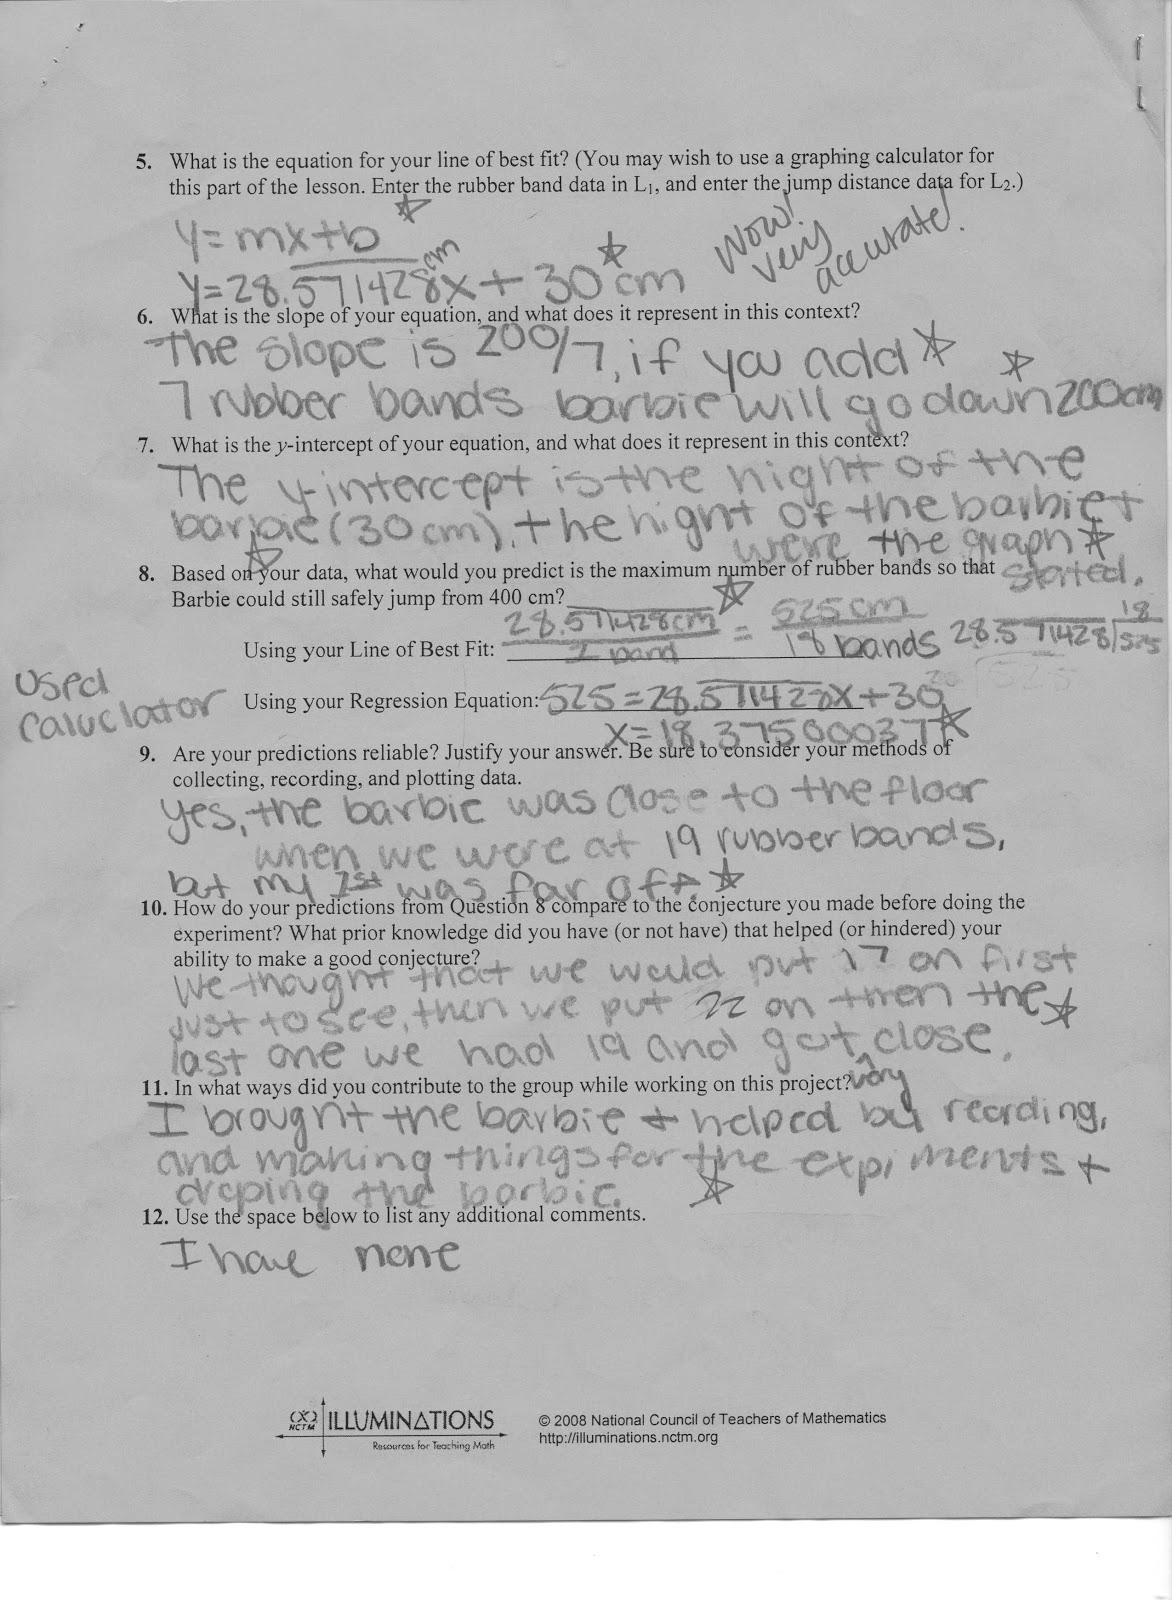 5. What is the equation for your line of best fit? (You may wish to use a graphing calculator for
this part of the lesson. Enter the rubber band data in L1, and enter the jump distance data for L2.)
y=mx+b
Wow!
very
accurate!
y=28.571428cm x + 30 cm
6. What is the slope of your equation, and what does it represent in this context?
The slope is 200/7, if you add
7 rubber bands barbie will go down 200cm
7. What is the y-intercept of your equation, and what does it represent in this context?
The y-intercept is the hight of the
barbie (30cm), the hight of the barbie +
were the graph
started.
8. Based on your data, what would you predict is the maximum number of rubber bands so that
Barbie could still safely jump from 400 cm?
Using your Line of Best Fit: 28.571428cm / 1 band = 525cm / 18 bands
18
28.571428 525
Used
Caluclator
Using your Regression Equation: 525=28.571428x+30
x=18.375000037
9. Are your predictions reliable? Justify your answer. Be sure to consider your methods of
collecting, recording, and plotting data.
Yes, the barbie was close to the floor
when we were at 19 rubber bands,
but my 1st was far off.
10. How do your predictions from Question 8 compare to the conjecture you made before doing the
experiment? What prior knowledge did you have (or not have) that helped (or hindered) your
ability to make a good conjecture?
We thought that we would put 17 on first
just to see, then we put 22 on then the
last one we had 19 and got very close.
11. In what ways did you contribute to the group while working on this project?
I brought the barbie + helped by reording,
and making things for the expiriments +
droping the barbie.
12. Use the space below to list any additional comments.
I have none
NCTM
ILLUMINATIONS
Resources for Teaching Math
© 2008 National Council of Teachers of Mathematics
http://illuminations.nctm.org